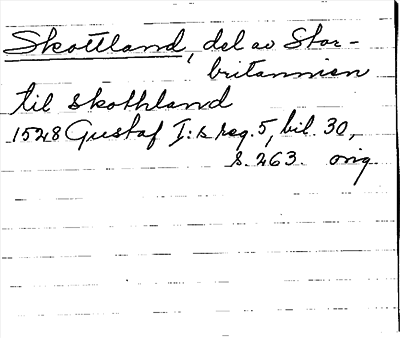 Skottland, del av Stor-
britannien
til Skothland
1528 Gustaf I:s reg. 5, bil. 30,
s. 263. orig.